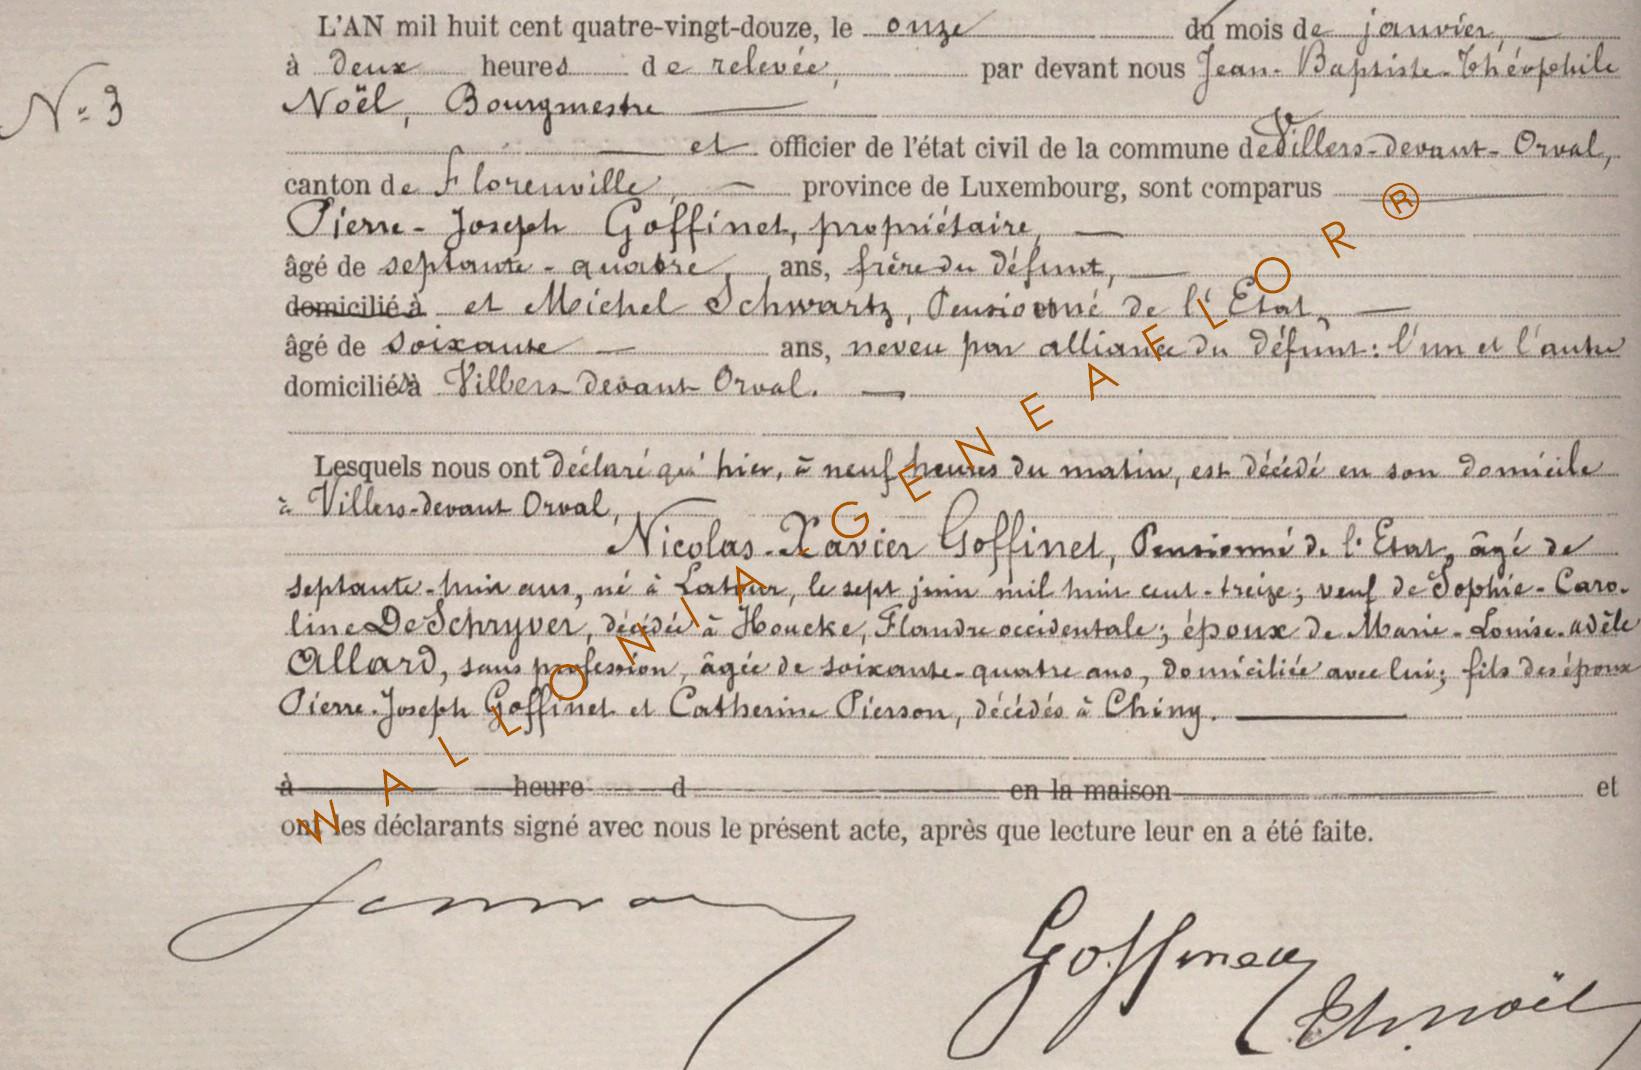 L'AN mil huit cent quatre-vingt-douze, le onze du mois de janvier,
à deux heures de relevée, par devant nous Jean-Baptiste-Théophile
N° 3
Noël, Bourgmestre
et officier de l'état civil de la commune de Villers-devant-Orval,
canton de Florenville, province de Luxembourg, sont comparus
Pierre-Joseph Goffinet, propriétaire,
âgé de septante-quatre, ans, frère du défunt,
domicilié à et Michel Schwartz, Pensionné de l'Etat,
âgé de soixante ans, neveu par alliance du défunt: l'un et l'autre
domiciliés à Villers devant Orval.
Lesquels nous ont déclaré qu'hier, à neuf heures du matin, est décédé en son domicile
à Villers-devant Orval,
Nicolas-Xavier Goffinet, Pensionné de l'Etat, âgé de
septante-huit ans, né à Latour, le sept juin mil huit cent-treize; veuf de Sophie-Caro-
line De Schryver, décédée à Houcke, Flandre occidentale; époux de Marie-Louise-adèle
Allard, sans profession, âgée de soixante-quatre ans, domiciliée avec lui; fils des époux
Pierre-Joseph Goffinet et Catherine Pierson, décédés à Chiny.
à heure d en la maison et
ont les déclarants signé avec nous le présent acte, après que lecture leur en a été faite.
Goffinet
Th. Noël
WALLONIA GENEAFLOR ®